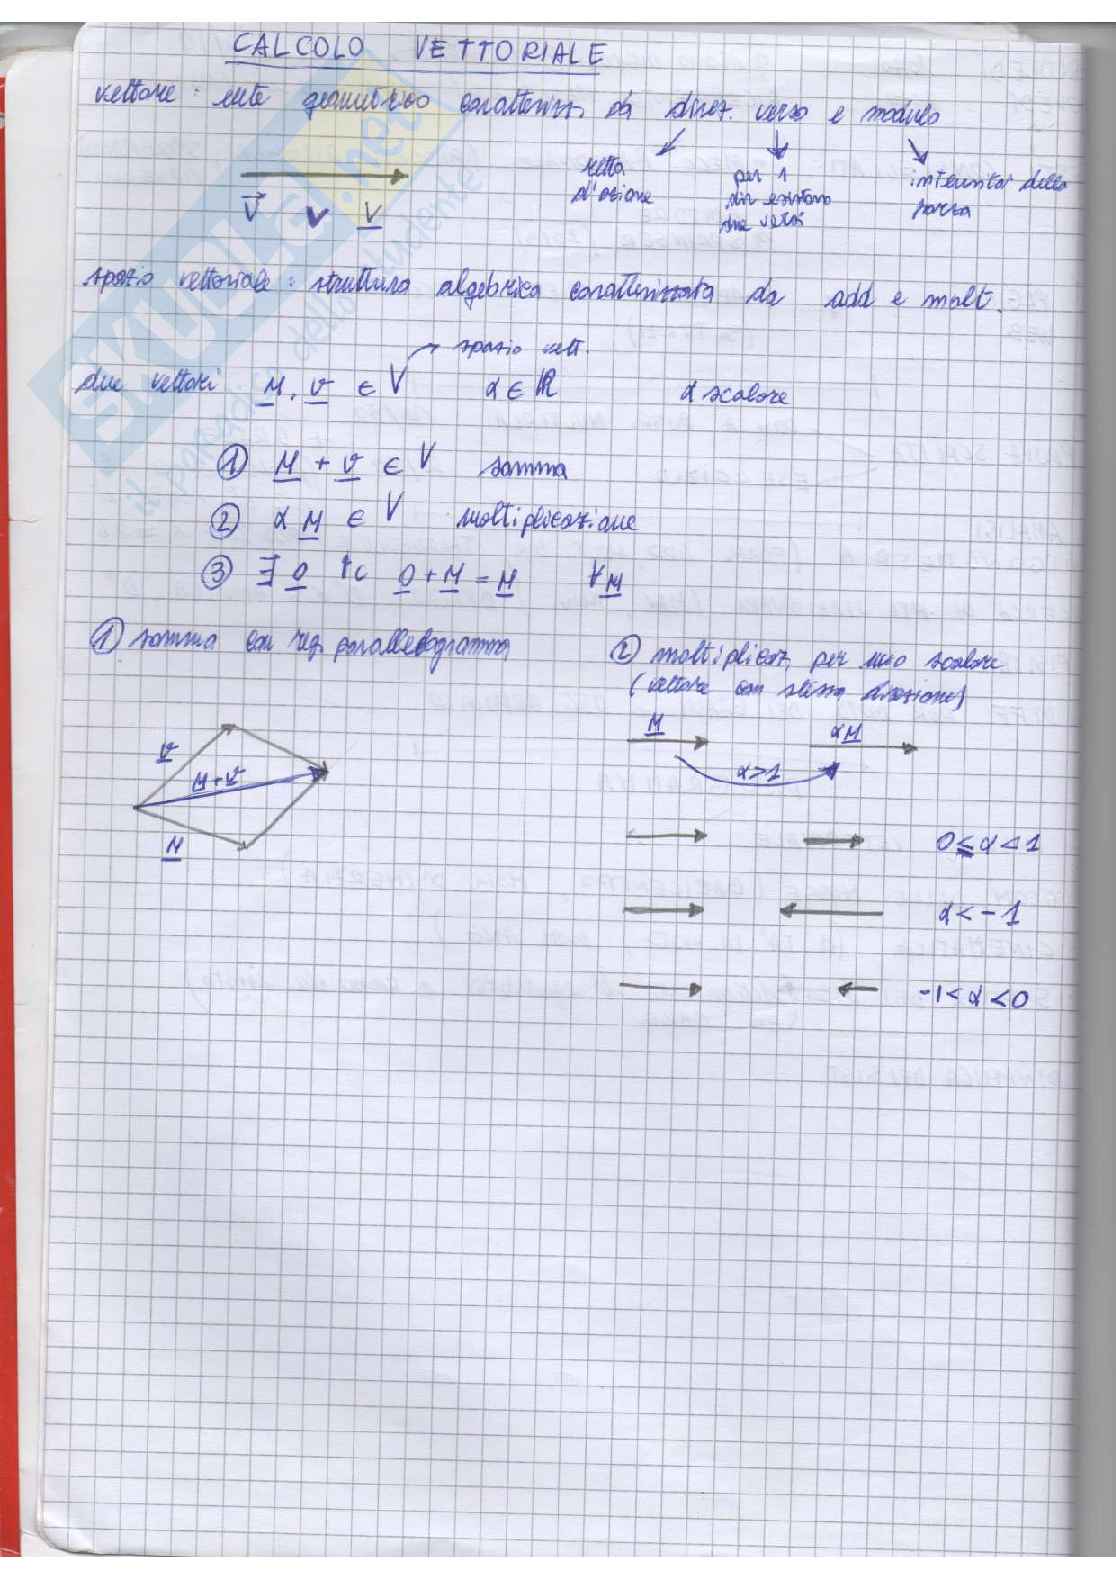 CALCOLO VETTORIALE
vettore : ente geometrico caratterizz. da direz. verso e modulo
retta
d'azione
per 1
dir esistono
due versi
intensità della
forza
V⃗ V V
spazio vettoriale : struttura algebrica caratterizzata da add e molt.
spazio vett.
due vettori u, v ∈ V α ∈ ℝ α scalare
① u + v ∈ V somma
② α u ∈ V moltiplicazione
③ ∃ 0 tc 0 + u = u ∀ u
① somma con reg. parallelogramma
② moltiplicaz. per uno scalare
(vettore con stessa direzione)
v
u+v
u
u αu
α>1
0≤α<1
α<-1
-1<α<0
SKUOLA.net